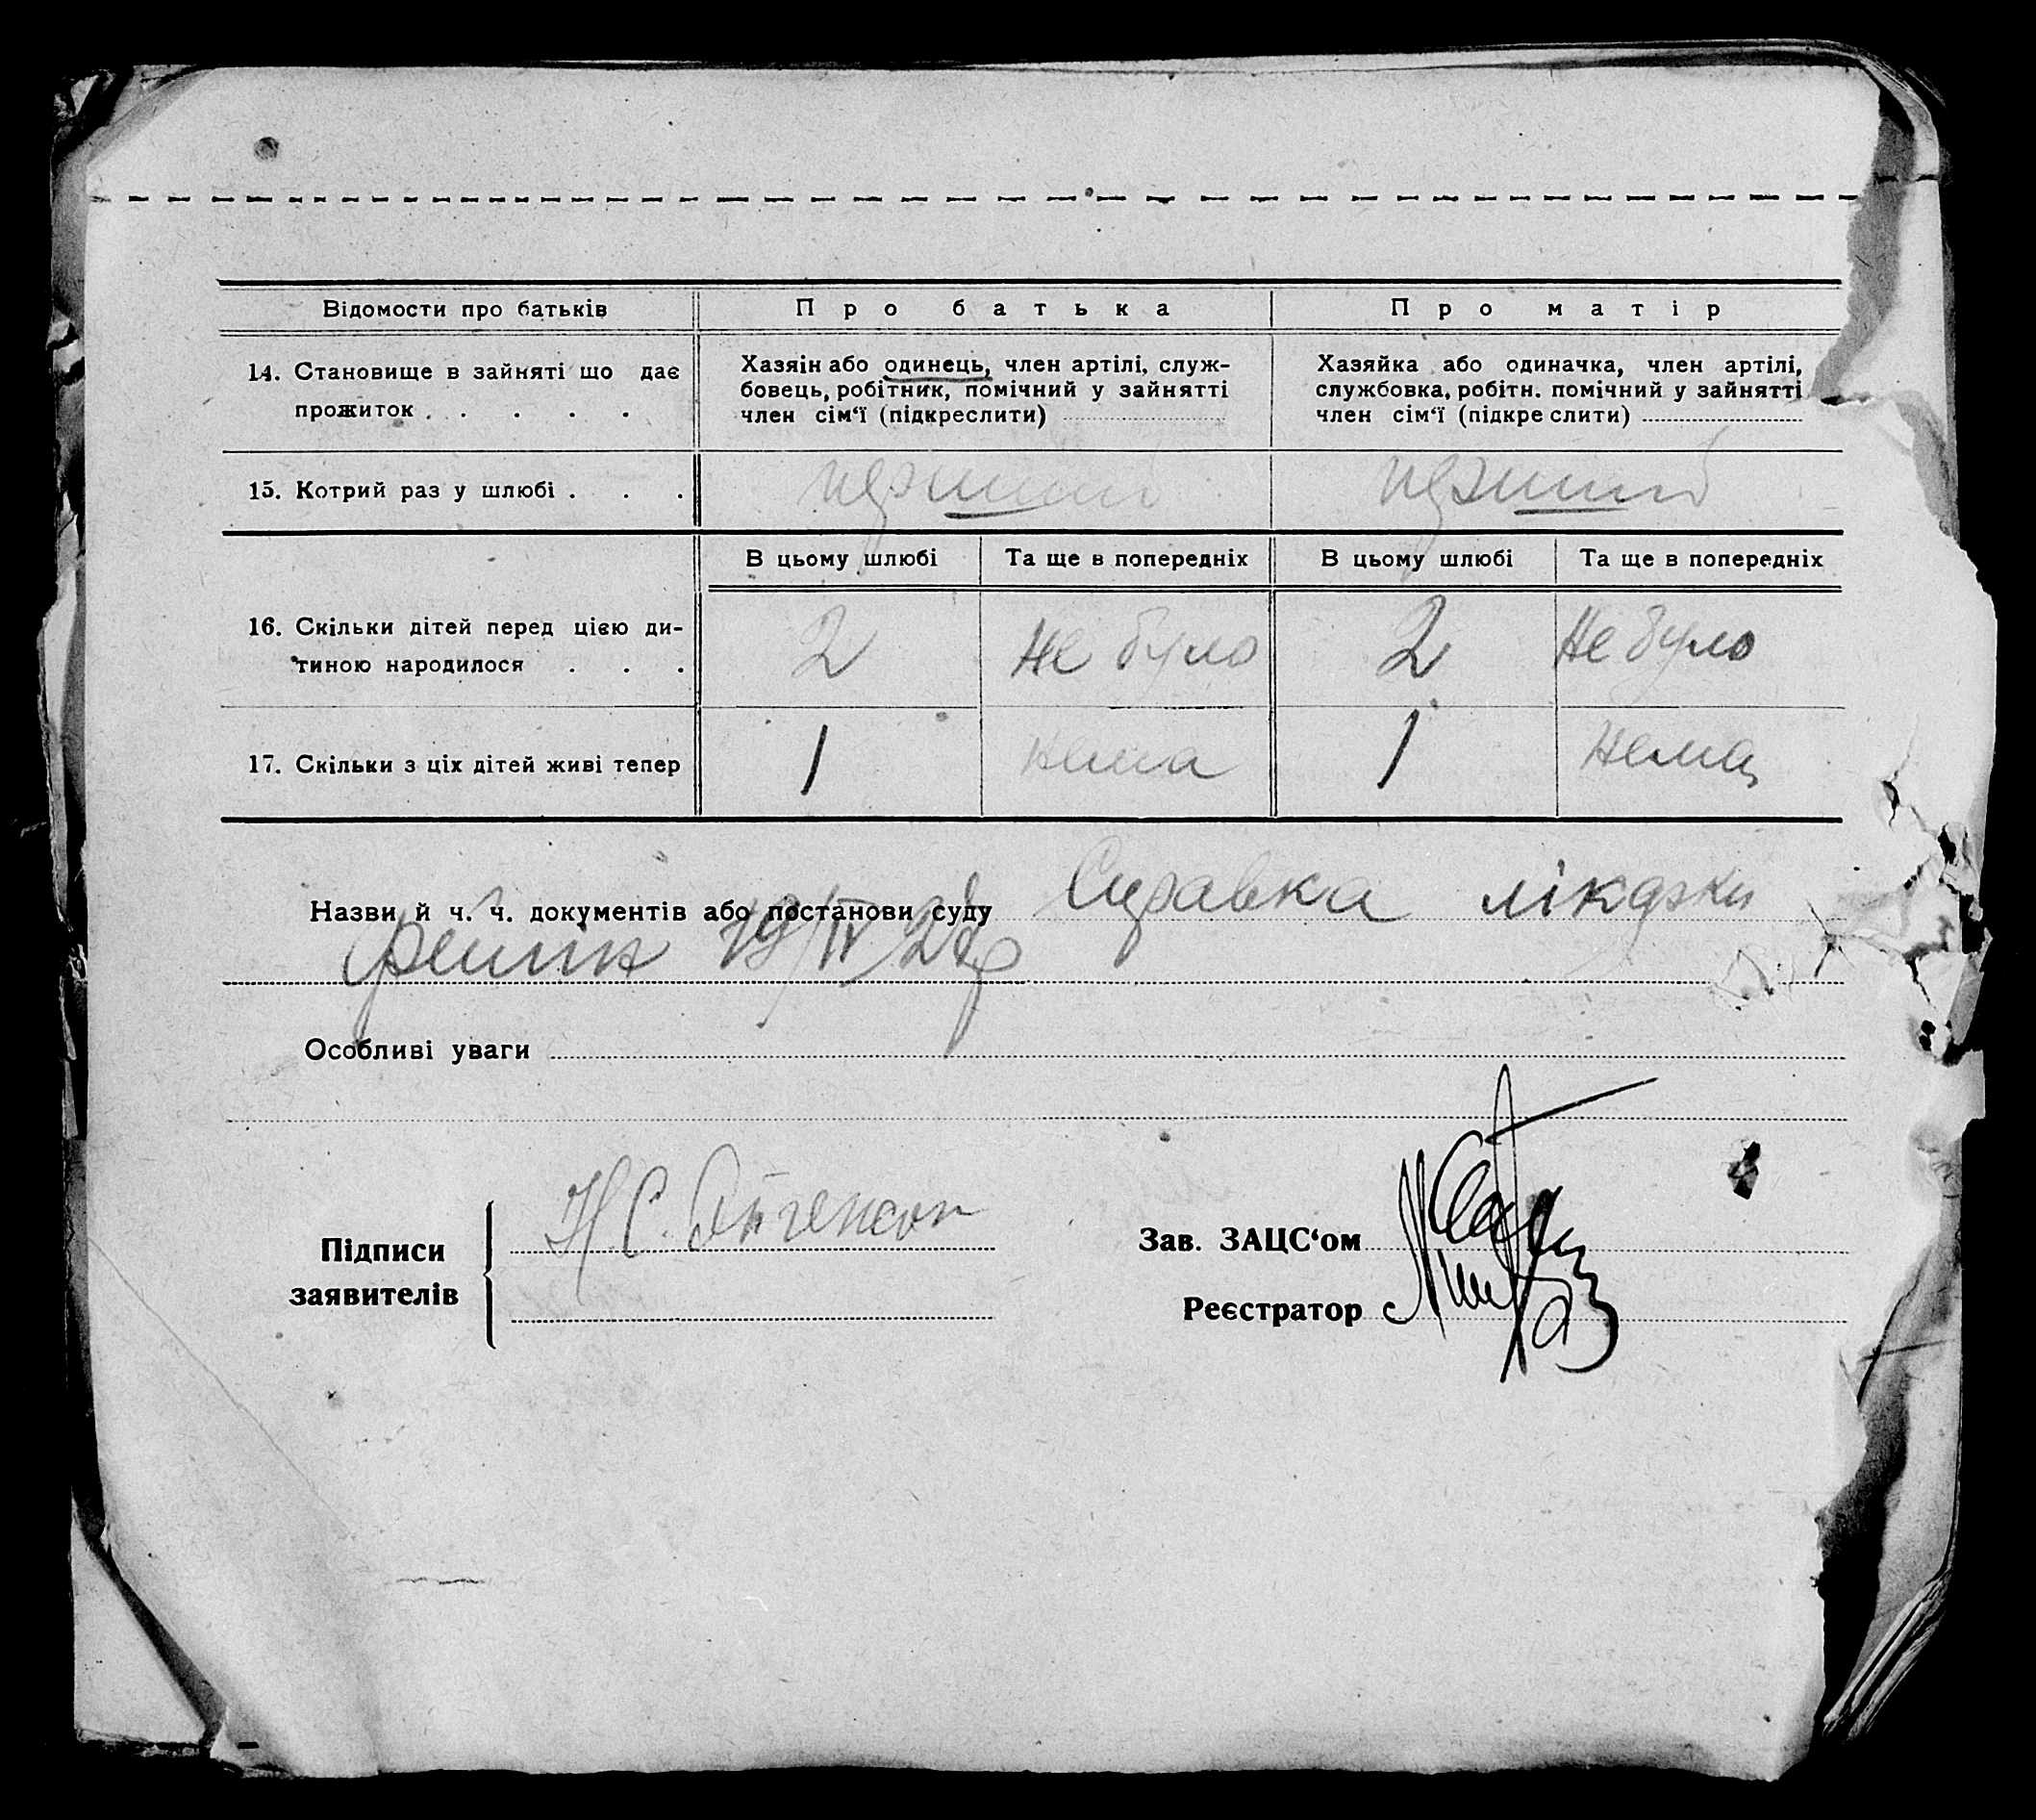 Відомости про батьків
Про батька
Про матір
14. Становище в зайняті що дає
прожиток . . . . .
Хазяін або одинець, член артілі, служ-
бовець, робітник, помічний у зайнятті
член сім‘ї (підкреслити)
Хазяйка або одиначка, член артілі,
службовка, робітн. помічний у зайнятті
член сім‘ї (підкре слити)
15. Котрий раз у шлюбі . . .
перший
перший
В цьому шлюбі
Та ще в попередніх
В цьому шлюбі
Та ще в попередніх
16. Скільки дітей перед цією ди-
тиною народилося . . .
2
Не було
2
Не було
17. Скільки з ціх дітей живі тепер
1
нема
1
нема
Назви й ч. ч. документів або постанови суду Справка лікарки
19/IV
Особливі уваги
Підписи
заявителів
Н. С.
Зав. ЗАЦС‘ом
Реєстратор